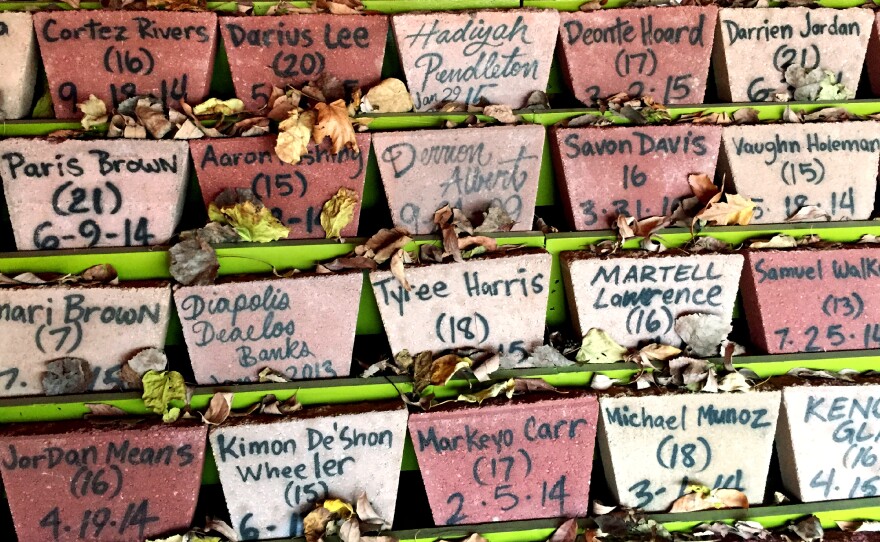 Cortez Rivers
(16)
9.18.14
Darius Lee
(20)
Hadiyah
Pendleton
Jan 29, 15
Deonte Hoard
(17)
Darrien Jordan
(21)
Paris Brown
(21)
6-9-14
Aaron
(15)
Derrion
Albert
Savon Davis
16
3.31.1
Vaughn Holeman
(15)
5.18.14
mari Brown
(7)
Diapolis
Deaclos
Banks
2013
Tyree Harris
(18)
15
MARTELL
Lawrence
(16)
Samuel Walk
(13)
7.25.14
JorDan Means
(16)
4.19.14
Kimon De'Shon
Wheeler
(15)
Markeyo Carr
(17)
2.5.14
Michael Munoz
(18)
KENO
(16
4.15